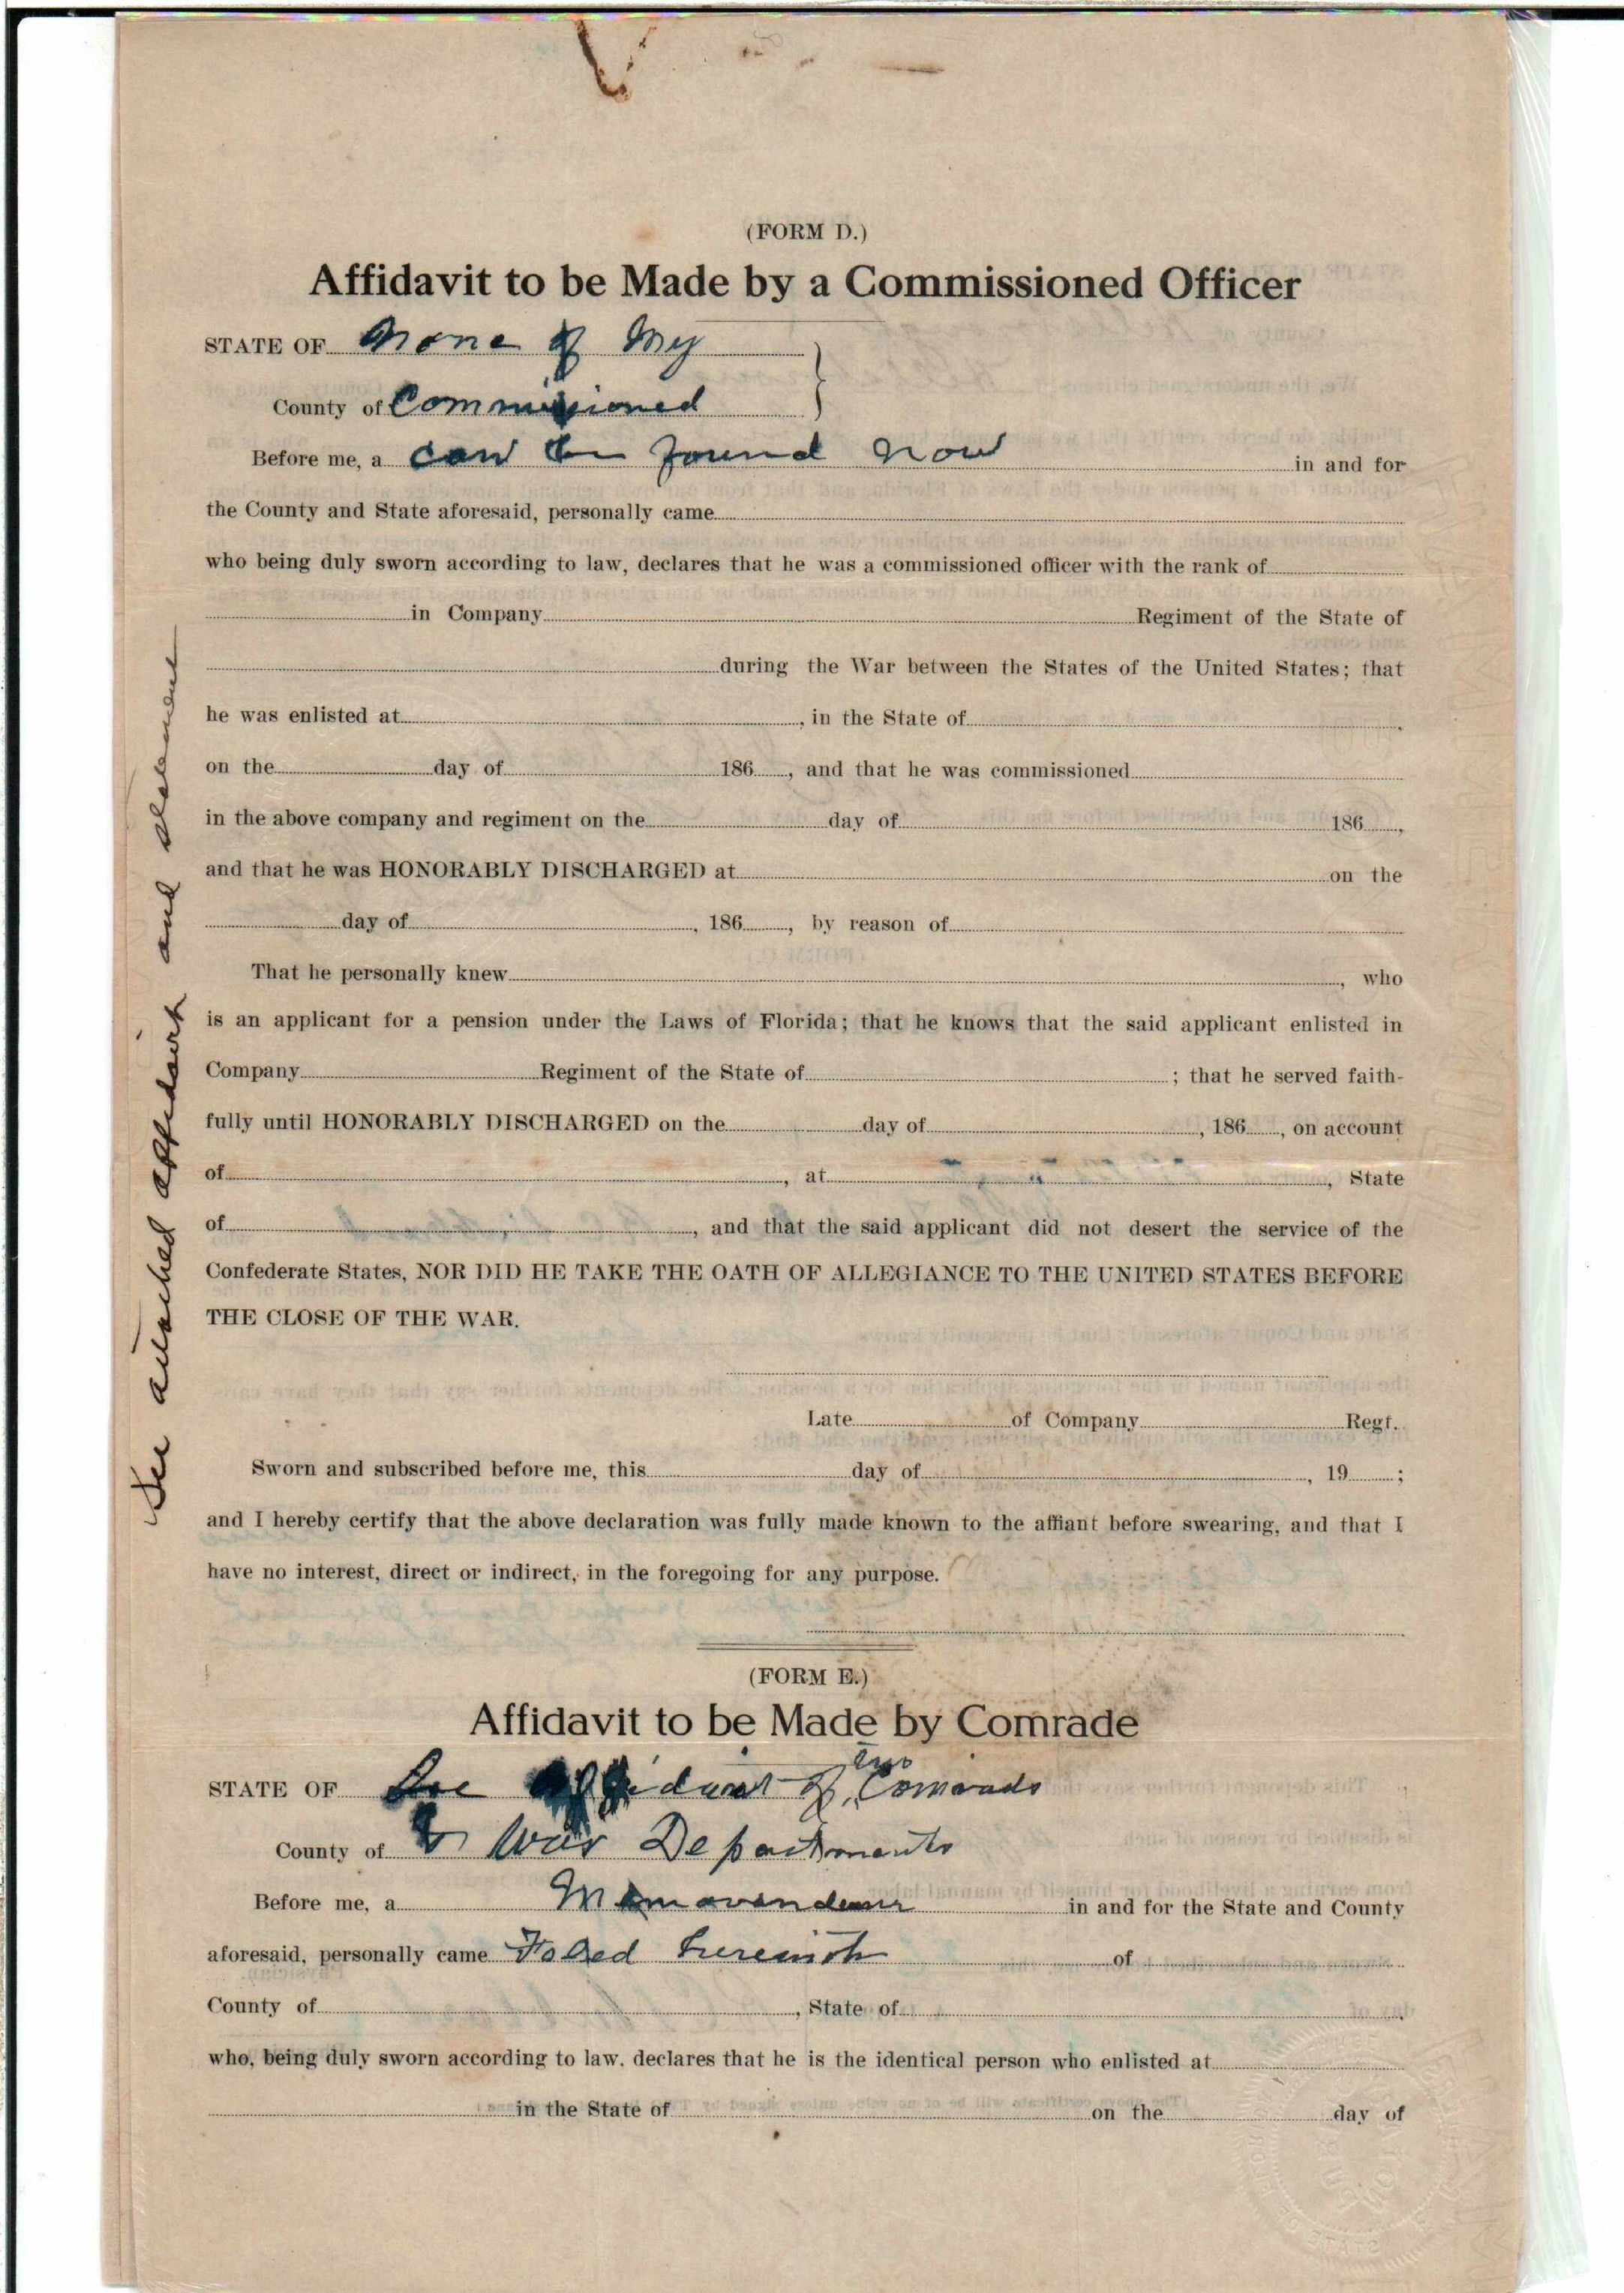 (FORM D.)
Affidavit to be Made by a Commissioned Officer
STATE OF None of My
County of Commissioned
Before me, a can be found now in and for
the County and State aforesaid, personally came
who being duly sworn according to law, declares that he was a commissioned officer with the rank of
in Company Regiment of the State of
during the War between the States of the United States; that
he was enlisted at , in the State of ,
on the day of 186 , and that he was commissioned
in the above company and regiment on the day of 186 ,
and that he was HONORABLY DISCHARGED at on the
day of , 186 , by reason of
That he personally knew , who
is an applicant for a pension under the Laws of Florida; that he knows that the said applicant enlisted in
Company Regiment of the State of ; that he served faith-
fully until HONORABLY DISCHARGED on the day of , 186 , on account
of , at , State
of , and that the said applicant did not desert the service of the
Confederate States, NOR DID HE TAKE THE OATH OF ALLEGIANCE TO THE UNITED STATES BEFORE
THE CLOSE OF THE WAR.
Late of Company Regt.
Sworn and subscribed before me, this day of , 19 ;
and I hereby certify that the above declaration was fully made known to the affiant before swearing, and that I
have no interest, direct or indirect, in the foregoing for any purpose.
See attached affidavit and statement
(FORM E.)
Affidavit to be Made by Comrade
two
STATE OF See of Comrads
County of & War Departments
Before me, a in and for the State and County
aforesaid, personally came herewith of
County of , State of ,
who, being duly sworn according to law, declares that he is the identical person who enlisted at
in the State of on the day of